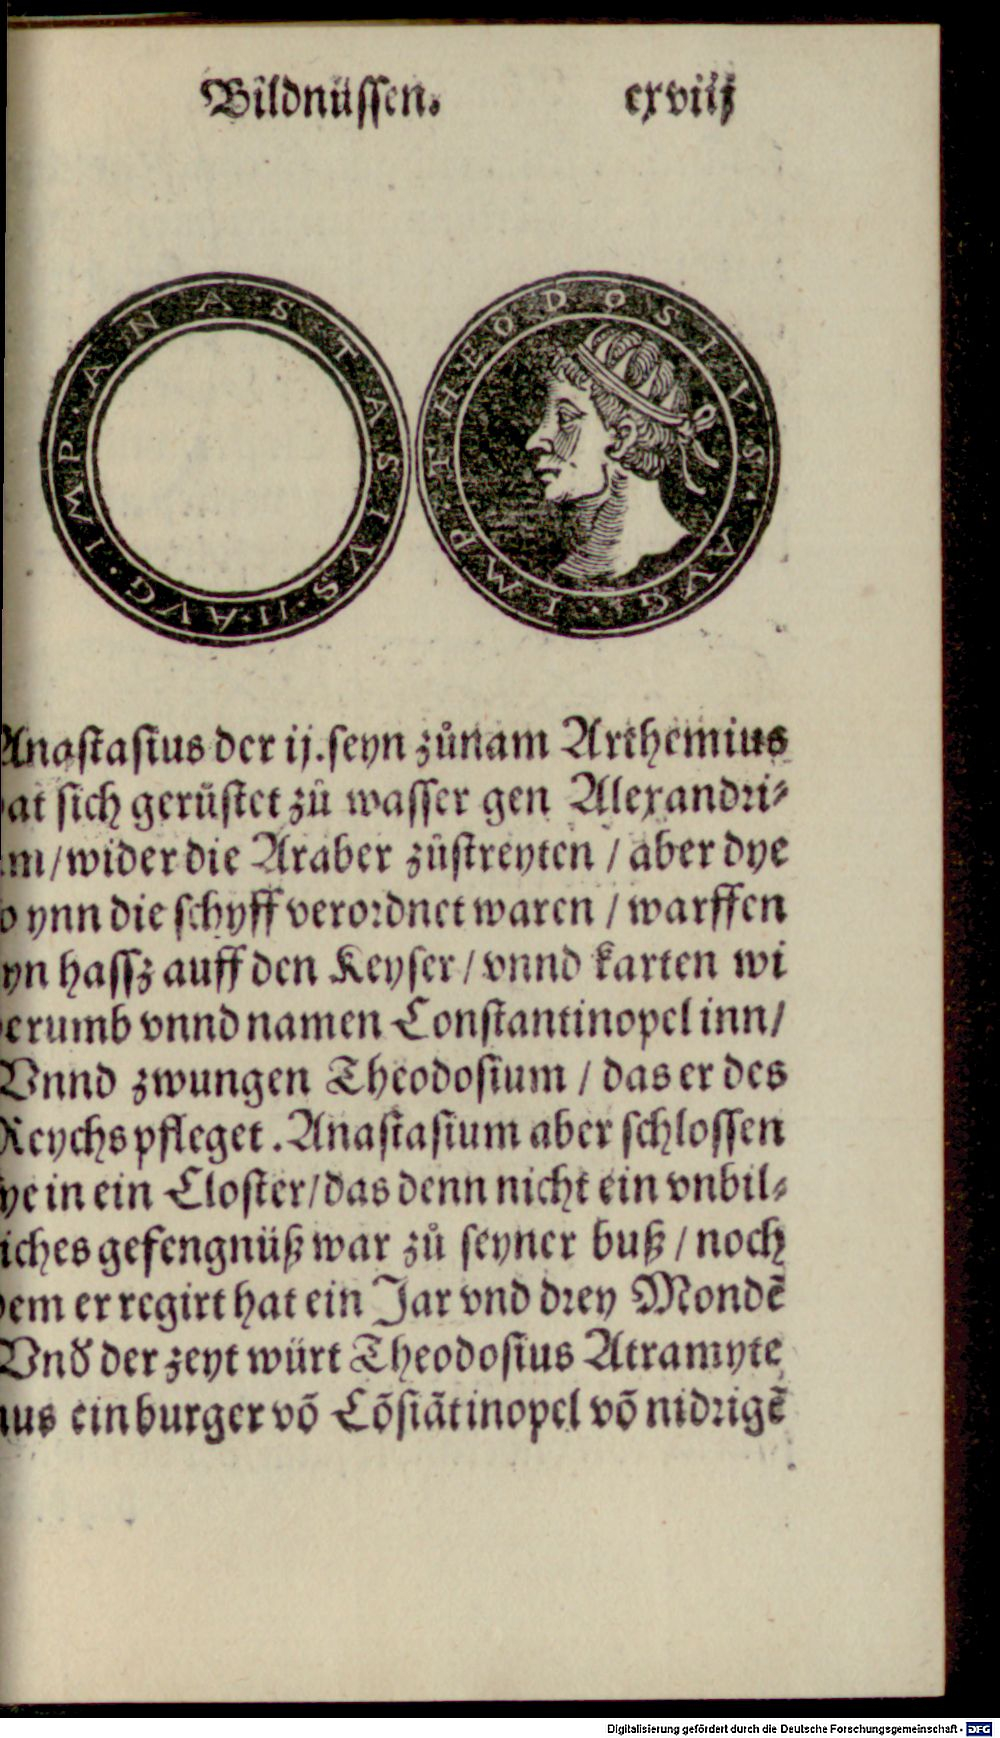 Bildnüssen. cxviij
IMP. ANASTASIVS. II. AVG.
IMP. THEODOSIVS. AVG.
Anastasius der ij. seyn zůnam Arthemius
at sich gerüstet zů wasser gen Alexandri⸗
m / wider die Araber zůstreyten / aber dye
o ynn die schyff verordnet waren / warffen
yn hassz auff den Keyser / vnnd karten wi
erumb vnnd namen Constantinopel inn /
Vnnd zwungen Theodosium / das er des
Reychs pfleget. Anastasium aber schlossen
ye in ein Closter / das denn nicht ein vnbil⸗
iches gefengnüß war zů seyner buß / noch
dem er regirt hat ein Jar vnd drey Mondē
Vnd der zeyt würt Theodosius Atramyte
nus ein burger võ Cõstãtinopel võ nidrigē
Digitalisierung gefördert durch die Deutsche Forschungsgemeinschaft - DFG